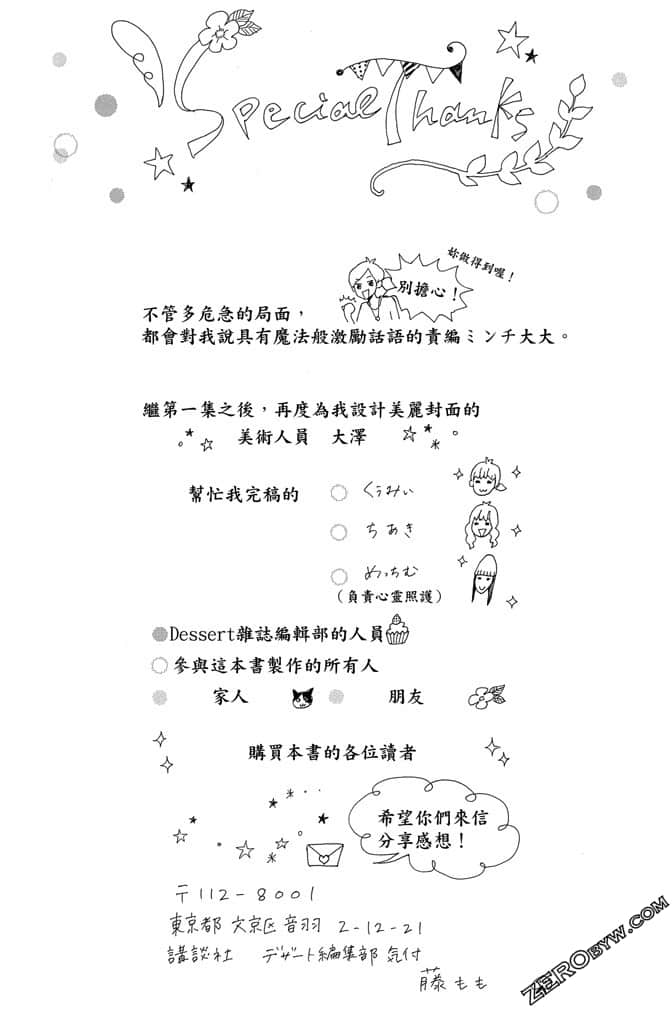 Special Thanks
妳做得到喔！
別擔心！
不管多危急的局面，
都會對我說具有魔法般激勵話語的責編ミンチ大大。
繼第一集之後，再度為我設計美麗封面的
美術人員　大澤
幫忙我完稿的
くぅみぃ
ちあき
めっちむ
（負責心靈照護）
Dessert雜誌編輯部的人員
參與這本書製作的所有人
家人
朋友
購買本書的各位讀者
希望你們來信
分享感想！
〒112-8001
東京都 文京区 音羽 2-12-21
講談社 デザート編集部 気付
藤もも
ZEROBYW.COM